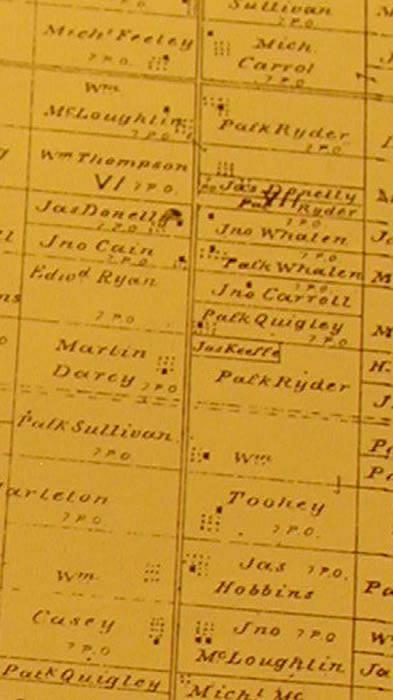 Mich! Feeley
7 P.O.
Wm
McLoughlin
7 P.O.
Wm Thompson
VI 7 P.O.
Jas Donelly
7 P.O.
Jno Cain
7 P.O.
Edwd Ryan
7 P.O.
Martin
Darcy 7 P.O
Patk Sullivan
7 P.O.
arleton
7 P.O.
Wm
Casey
7 P.O.
Patk Quigley
Sullivan
7 P.O.
Mich.
Carrol
7 P.O.
Patk Ryder
7 P.O.
Jas Donelly
Patk Ryder
7 P.O.
Jno Whalen
7 P.O.
Patk Whalen
7 P.O.
Jno Carroll
Patk Quigley
7 P.O.
Jas Keeffe
Patk Ryder
Wm
Toohey
7 P.O.
Jas 7 P.O.
Hobbins
Jno 7 P.O
McLoughlin
Mich! Mc